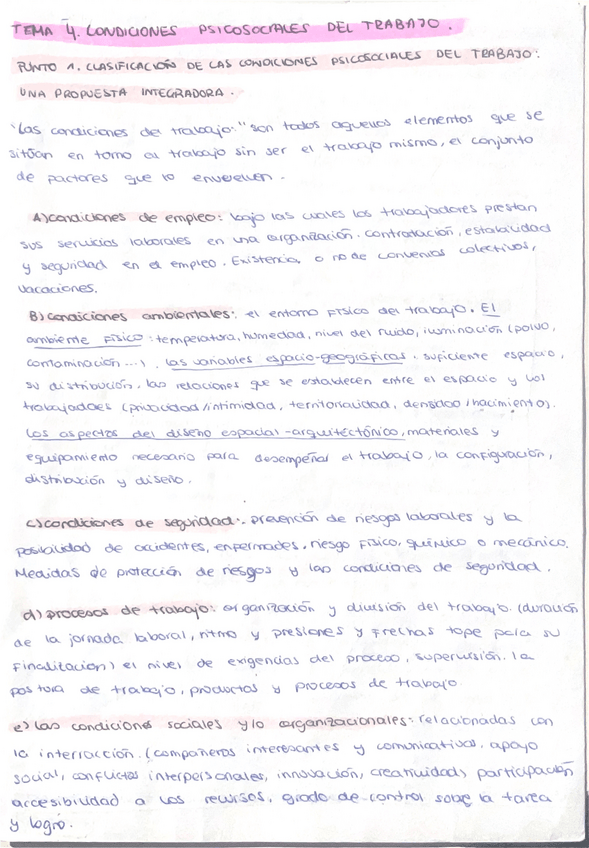 TEMA 4. CONDICIONES PSICOSOCIALES DEL TRABAJO.
PUNTO 1. CLASIFICACIÓN DE LAS CONDICIONES PSICOSOCIALES DEL TRABAJO:
UNA PROPUESTA INTEGRADORA.
"Las condiciones del trabajo:" son todos aquellos elementos que se
sitúan en torno al trabajo sin ser el trabajo mismo, el conjunto
de factores que lo envuelven.
A) condiciones de empleo: bajo las cuales los trabajadores prestan
sus servicios laborales en una organización. Contratación, estabilidad
y seguridad en el empleo. Existencia o no de convenios colectivos,
vacaciones.
B) condiciones ambientales: el entorno físico del trabajo. El
ambiente físico: temperatura, humedad, nivel del ruido, iluminación (polvo,
contaminación...). Las variables espacio-geográficas. suficiente espacio,
su distribución, las relaciones que se establecen entre el espacio y los
trabajadores (privacidad/intimidad, territorialidad, densidad/hacimiento).
Los aspectos del diseño espacial-arquitectónico, materiales y
equipamiento necesario para desempeñar el trabajo, la configuración,
distribución y diseño.
c) condiciones de seguridad:. prevención de riesgos laborales y la
posibilidad de accidentes, enfermades, riesgo físico, químico o mecánico.
Medidas de protección de riesgos y las condiciones de seguridad.
d) procesos de trabajo: organización y división del trabajo. (duración
de la jornada laboral, ritmo y presiones y frechas tope para su
finalización) el nivel de exigencias del proceso, supervisión. la
postura de trabajo, productos y procesos de trabajo.
e) las condiciones sociales y/o organizacionales: relacionadas con
la interración. (compañeros interesantes y comunicativos, apoyo
social, conflictos interpersonales, innovación, creatividad) participación
arcesibilidad a los recursos, grado de control sobre la tarea
y logro.